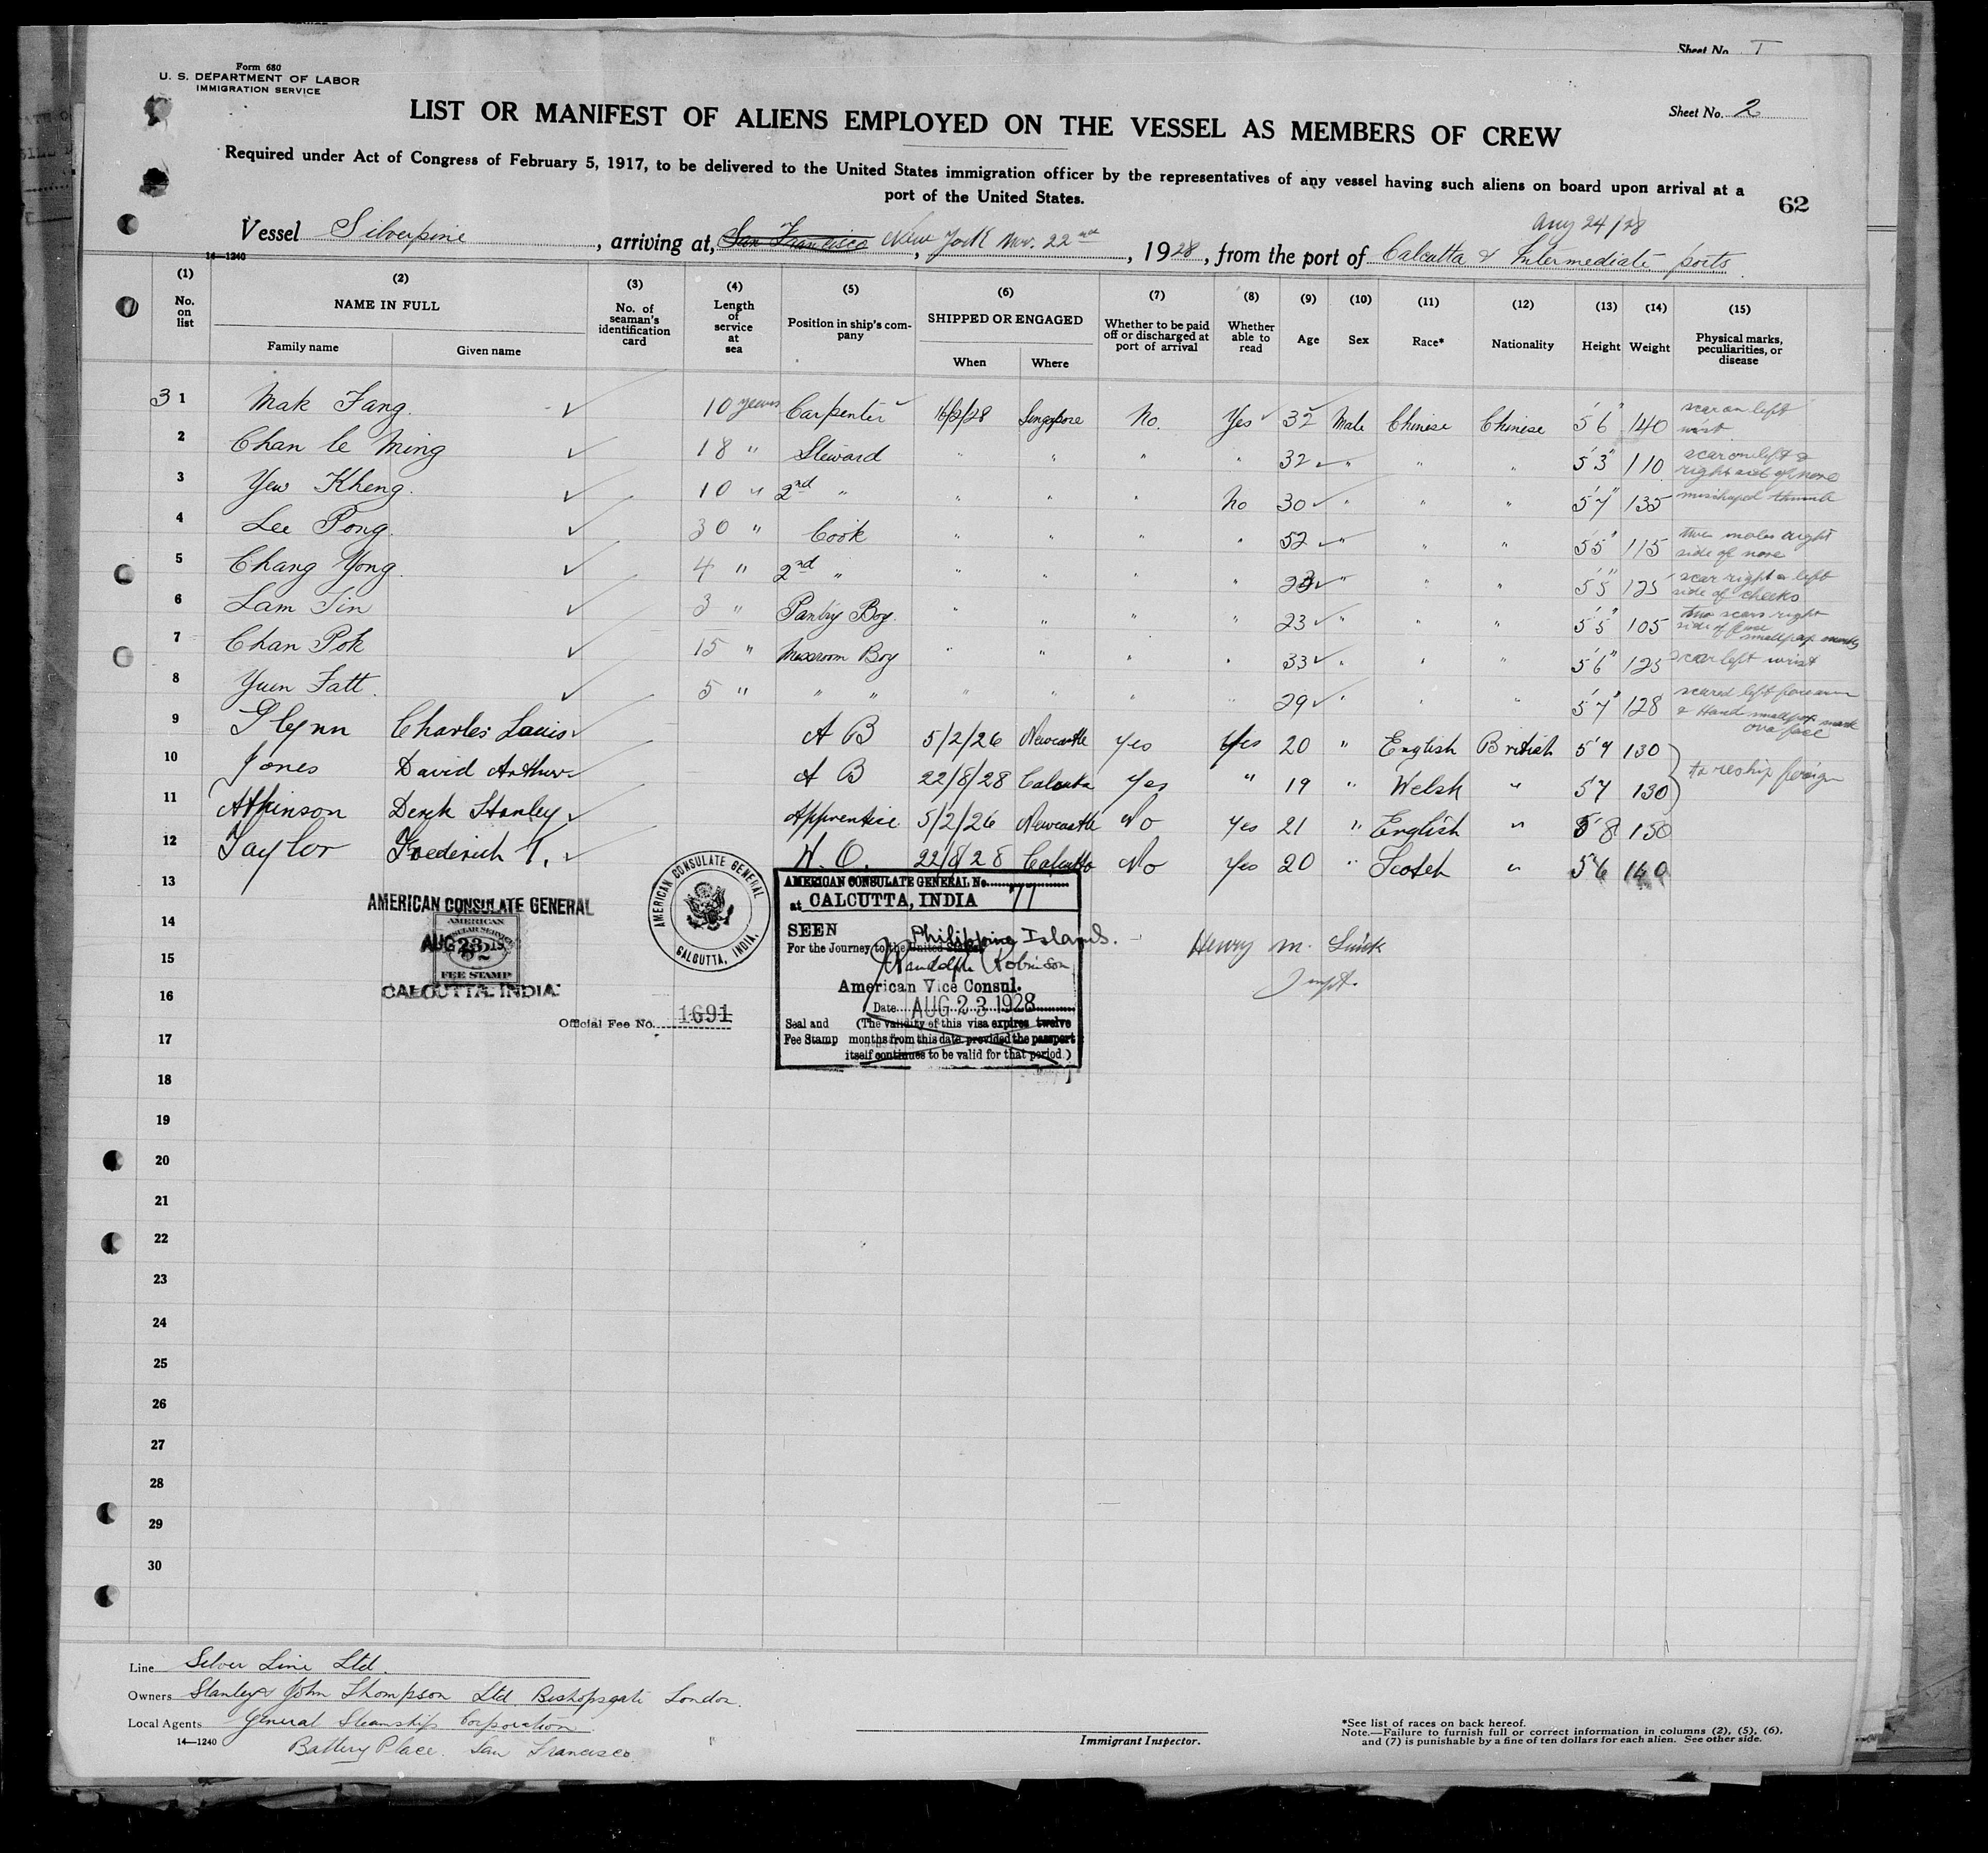 Sheet No. I
Form 680
U. S. DEPARTMENT OF LABOR
IMMIGRATION SERVICE
Sheet No. 2
LIST OR MANIFEST OF ALIENS EMPLOYED ON THE VESSEL AS MEMBERS OF CREW
Required under Act of Congress of February 5, 1917, to be delivered to the United States immigration officer by the representatives of any vessel having such aliens on board upon arrival at a
port of the United States.
62
Aug 24/28
Vessel Silverpine, arriving at, San Francisco New York Nov. 22nd, 1928, from the port of Calcutta & Intermediate ports
14—1240
(1) (2) (3) (4) (5) (6) (7) (8) (9) (10) (11) (12) (13) (14) (15)
No. on list
NAME IN FULL
Family name Given name
No. of seaman's identification card
Length of service at sea
Position in ship's company
SHIPPED OR ENGAGED
When Where
Whether to be paid off or discharged at port of arrival
Whether able to read
Age Sex Race* Nationality Height Weight
Physical marks, peculiarities, or disease
3 1 Mak Fang. 10 years Carpenter 16/2/28 Singapore No. Yes 32 Male Chinese Chinese 5'6" 140 scar on left wrist
2 Chan le Ming 18 " Steward " " " " 32 " " " 5'3" 110 scar on left & right side of nose
3 Yew Kheng. 10 " 2nd " " " " No 30 " " " 5'7" 135 mishaped thumb
4 Lee Pong. 30 " Cook " " " " 52 " " " 5'5" 115 two moles right side of nose
5 Chang Yong. 4 " 2nd " " " " " 23 " " " 5'5" 125 scar right & left side of cheeks
6 Lam Sin 3 " Pantry Boy. " " " " 23 " " " 5'5" 105 two scars right side of face smallpox marks
7 Chan Pok 15 " Messroom Boy " " " " 33 " " " 5'6" 123 scar left wrist
8 Yuen Fatt. 5 " " " " " " " 29 " " " 5'7" 128 scared left forearm & Hand smallpox mark over face
9 Glynn Charles Louis A B 5/2/26 Newcastle Yes Yes 20 " English British 5'7 130
10 Jones David Arthur A B 22/8/28 Calcutta Yes " 19 " Welsh " 5'7 130 to reship foreign
11 Atkinson Derek Stanley Apprentice 5/2/26 Newcastle No Yes 21 " English " 5'8 150
12 Taylor Frederick T. W.O. 22/8/28 Calcutta No Yes 20 " Scotch " 5'6 140
13
14
15
16
17
18
19
20
21
22
23
24
25
26
27
28
29
30
AMERICAN CONSULATE GENERAL
AUG 23 19
AMERICAN
CONSULAR SERVICE
FEE STAMP
CALCUTTA. INDIA.
AMERICAN CONSULATE GENERAL
CALCUTTA, INDIA.
Official Fee No. 1691
AMERICAN CONSULATE GENERAL No. 77
at CALCUTTA, INDIA
SEEN
Philippine Islands.
For the Journey to the United States
Randolph Robinson
American Vice Consul.
Date AUG 23 1928
Seal and (The validity of this visa expires twelve
Fee Stamp months from this date provided the passport
itself continues to be valid for that period.)
Henry M.
Inspt.
Line Silver Line Ltd.
Owners Stanley & John Thompson Ltd. Bishopsgate London.
Local Agents General Steamship Corporation
14—1240
Battery Place. San Francisco.
Immigrant Inspector.
*See list of races on back hereof.
Note.—Failure to furnish full or correct information in columns (2), (5), (6),
and (7) is punishable by a fine of ten dollars for each alien. See other side.